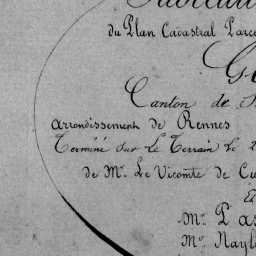 du Plan Cadastral Parce
Canton de
Arrondissement de Rennes
Terminé sur le Terrain le
de Mr. Le Vicomte de
Mr. P
Mr. Nayl